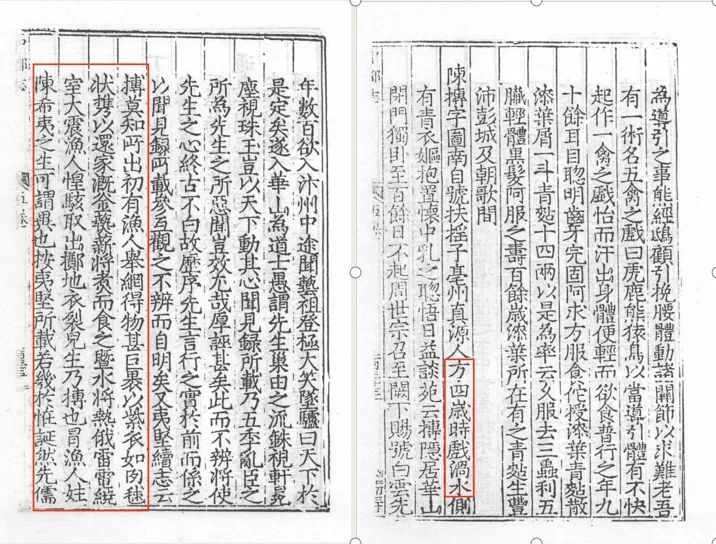 為導引之事能經鴟顧引挽腰體動諸關節以求難老吾
有一術名五禽之戲曰虎鹿熊猿鳥以當導引體有不快
起作一禽之戲怡而汗出身體便輕而欲食普行之年九
十餘耳目聰明齒牙完固阿求方服食佗授漆葉青黏散
漆葉屑一斗青黏十四兩以是為率云久服去三蟲利五
臟輕體黑髮阿服之壽百餘歲漆葉所在有之青黏生豐
沛彭城及朝歌間
陳摶字圖南自號扶搖子亳州真源人方四歲時戲渦水側
有青衣嫗抱置懷中乳之聦悟日益談苑云摶隱居華山
閉門獨卧至百餘日不起周世宗召至闕下賜號白雲先
年數百欲入汴州中途聞藝祖登極大笑墜驢曰天下於
是定矣遂入華山為道士愚謂先生巢由之流銖視軒冕
塵視珠玉豈以天下動其心聞見錄所載乃五季亂臣之
所為先生之所惡聞豈效尤哉厚誣甚矣此而不辨將使
先生之心終古不白故歷序先生言行之實於前而係之
以聞見錄所載參互觀之不辨而自明矣又夷堅續志云
摶莫知所出初有漁人舉網得物甚巨裹以紫衣如肉毬
狀携以還家溉釜爇薪將煮而食之暨水將熱俄雷電繞
室大震漁人惶駭取出擲地衣裂兒生乃摶也冒漁人姓
陳希夷之生可謂異也按夷堅所載若幾於恠誕然先儒